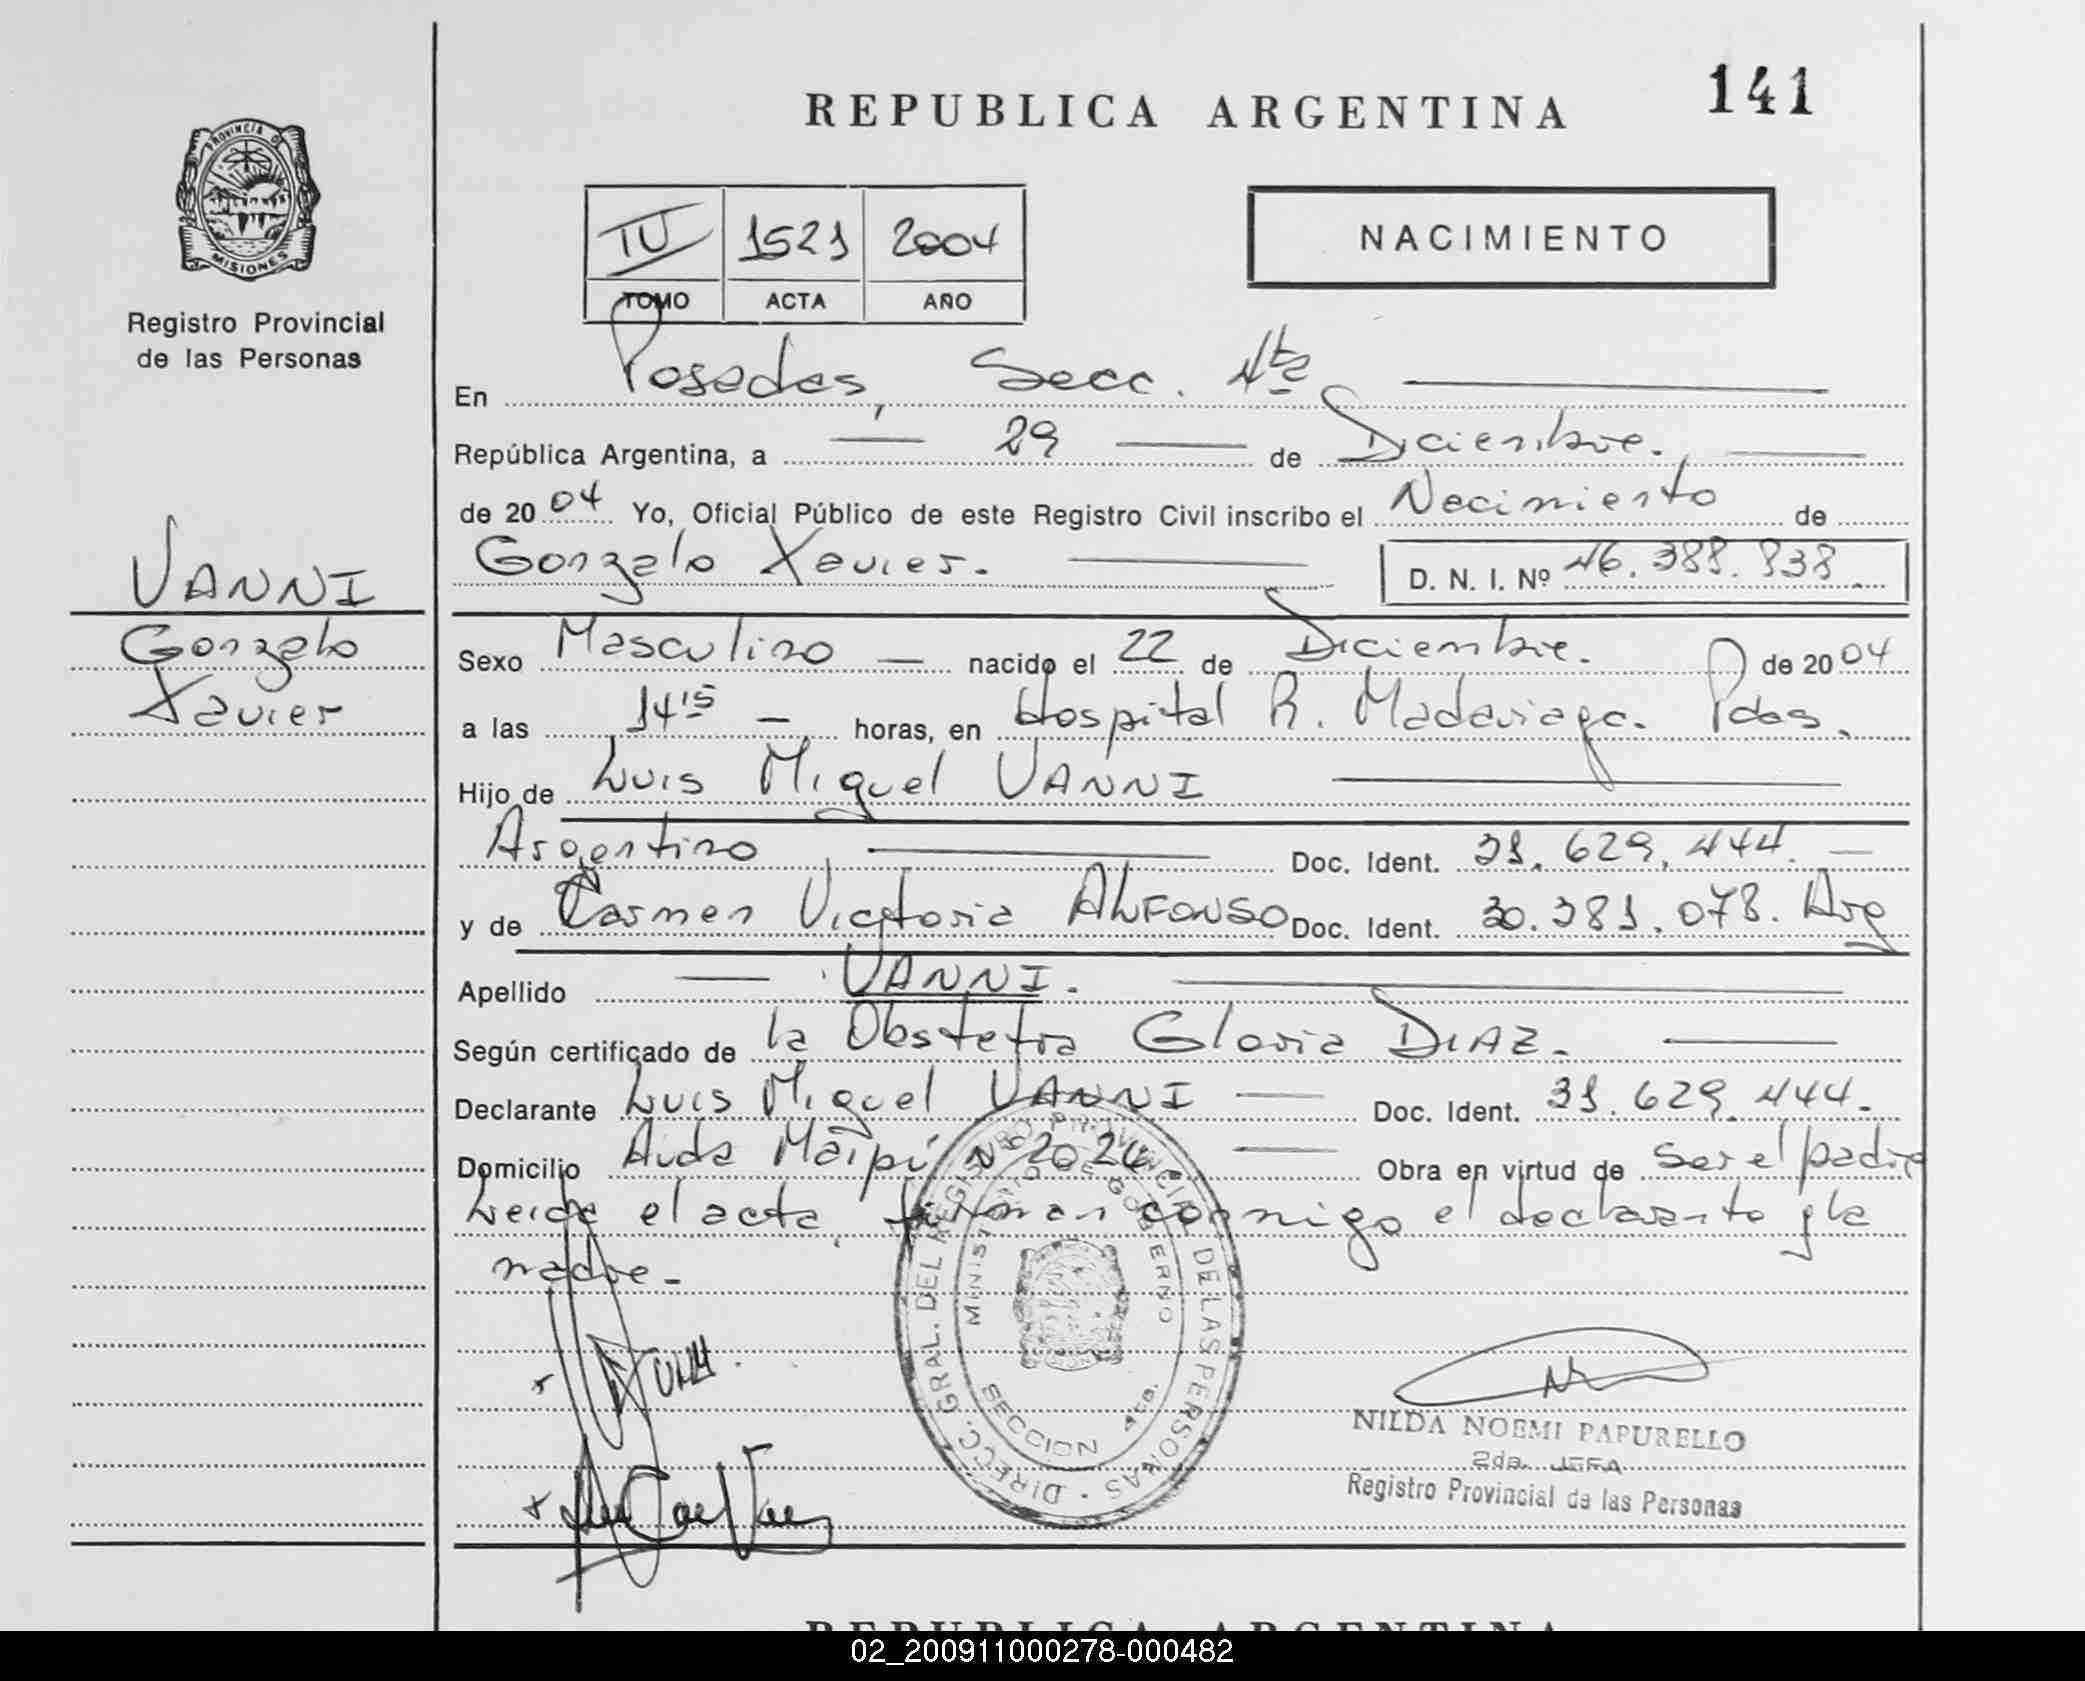 REPUBLICA ARGENTINA
141
PROVINCIA DE
MISIONES
Registro Provincial
de las Personas
IV 1521 2004
TOMO ACTA AÑO
NACIMIENTO
En Posadas, Secc. 4ta
República Argentina, a 29 de Diciembre.
de 2004 Yo, Oficial Público de este Registro Civil inscribo el Nacimiento de
Gonzalo Xavier. D. N. I. Nº 46.388.838
VANNI
Gonzalo
Xavier
Sexo Masculino nacido el 22 de Diciembre. de 2004
a las 14 15 horas, en Hospital R. Madariaga. Pdas.
Hijo de Luis Miguel VANNI
Argentino Doc. Ident. 31.629.444.
y de Carmen Victoria ALFONSO Doc. Ident. 30.381.078. Arg
Apellido VANNI.
Según certificado de la Obstetra Gloria DIAZ.
Declarante Luis Miguel VANNI Doc. Ident. 31.629.444.
Domicilio Avda Maipú Nº 2024 Obra en virtud de ser el padre
Leida el acta, firman conmigo el declarante y la
madre.
DIRECC. GRAL. DEL REGISTRO PROVINCIAL DE LAS PERSONAS
MINISTERIO DE GOBIERNO
SECCION 4ta.
NILDA NOEMI PAPURELLO
2da. JEFA
Registro Provincial de las Personas
REPUBLICA ARGENTINA
02_200911000278-000482